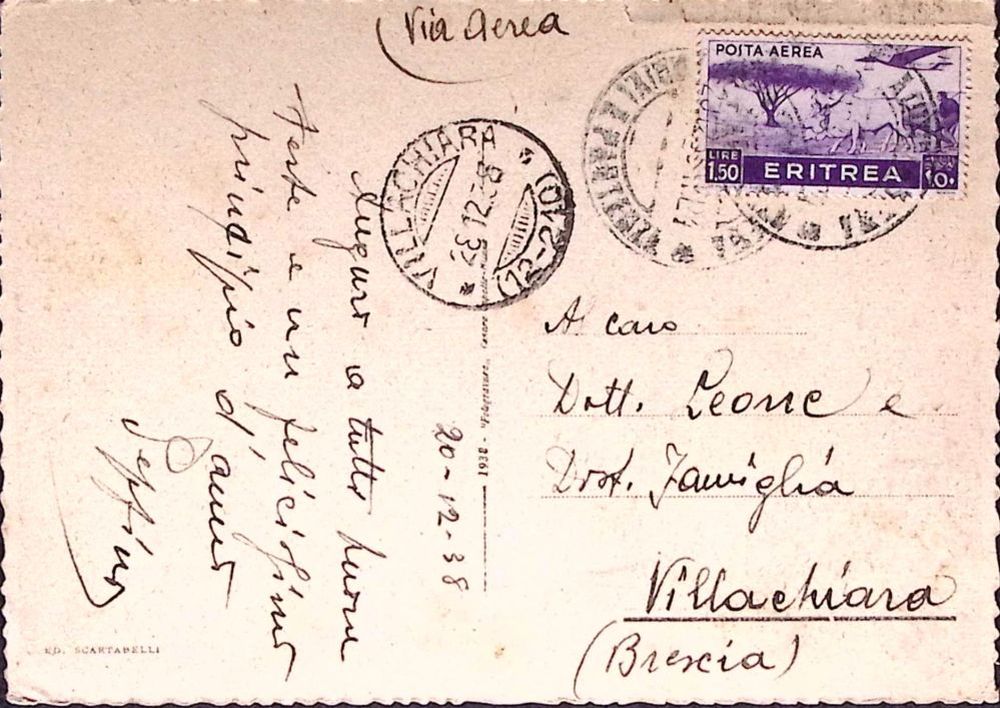 Via Aerea
POSTA AEREA
LIRE
1.50
ERITREA
VILLACHIARA
28.12.38
20-12-38
Auguro a tutti buone
feste e un felicissimo
principio d'anno
Peppino
Al caro
Dott. Leone e
Famiglia
Villachiara
(Brescia)
1938
ED. SCARTABELLI